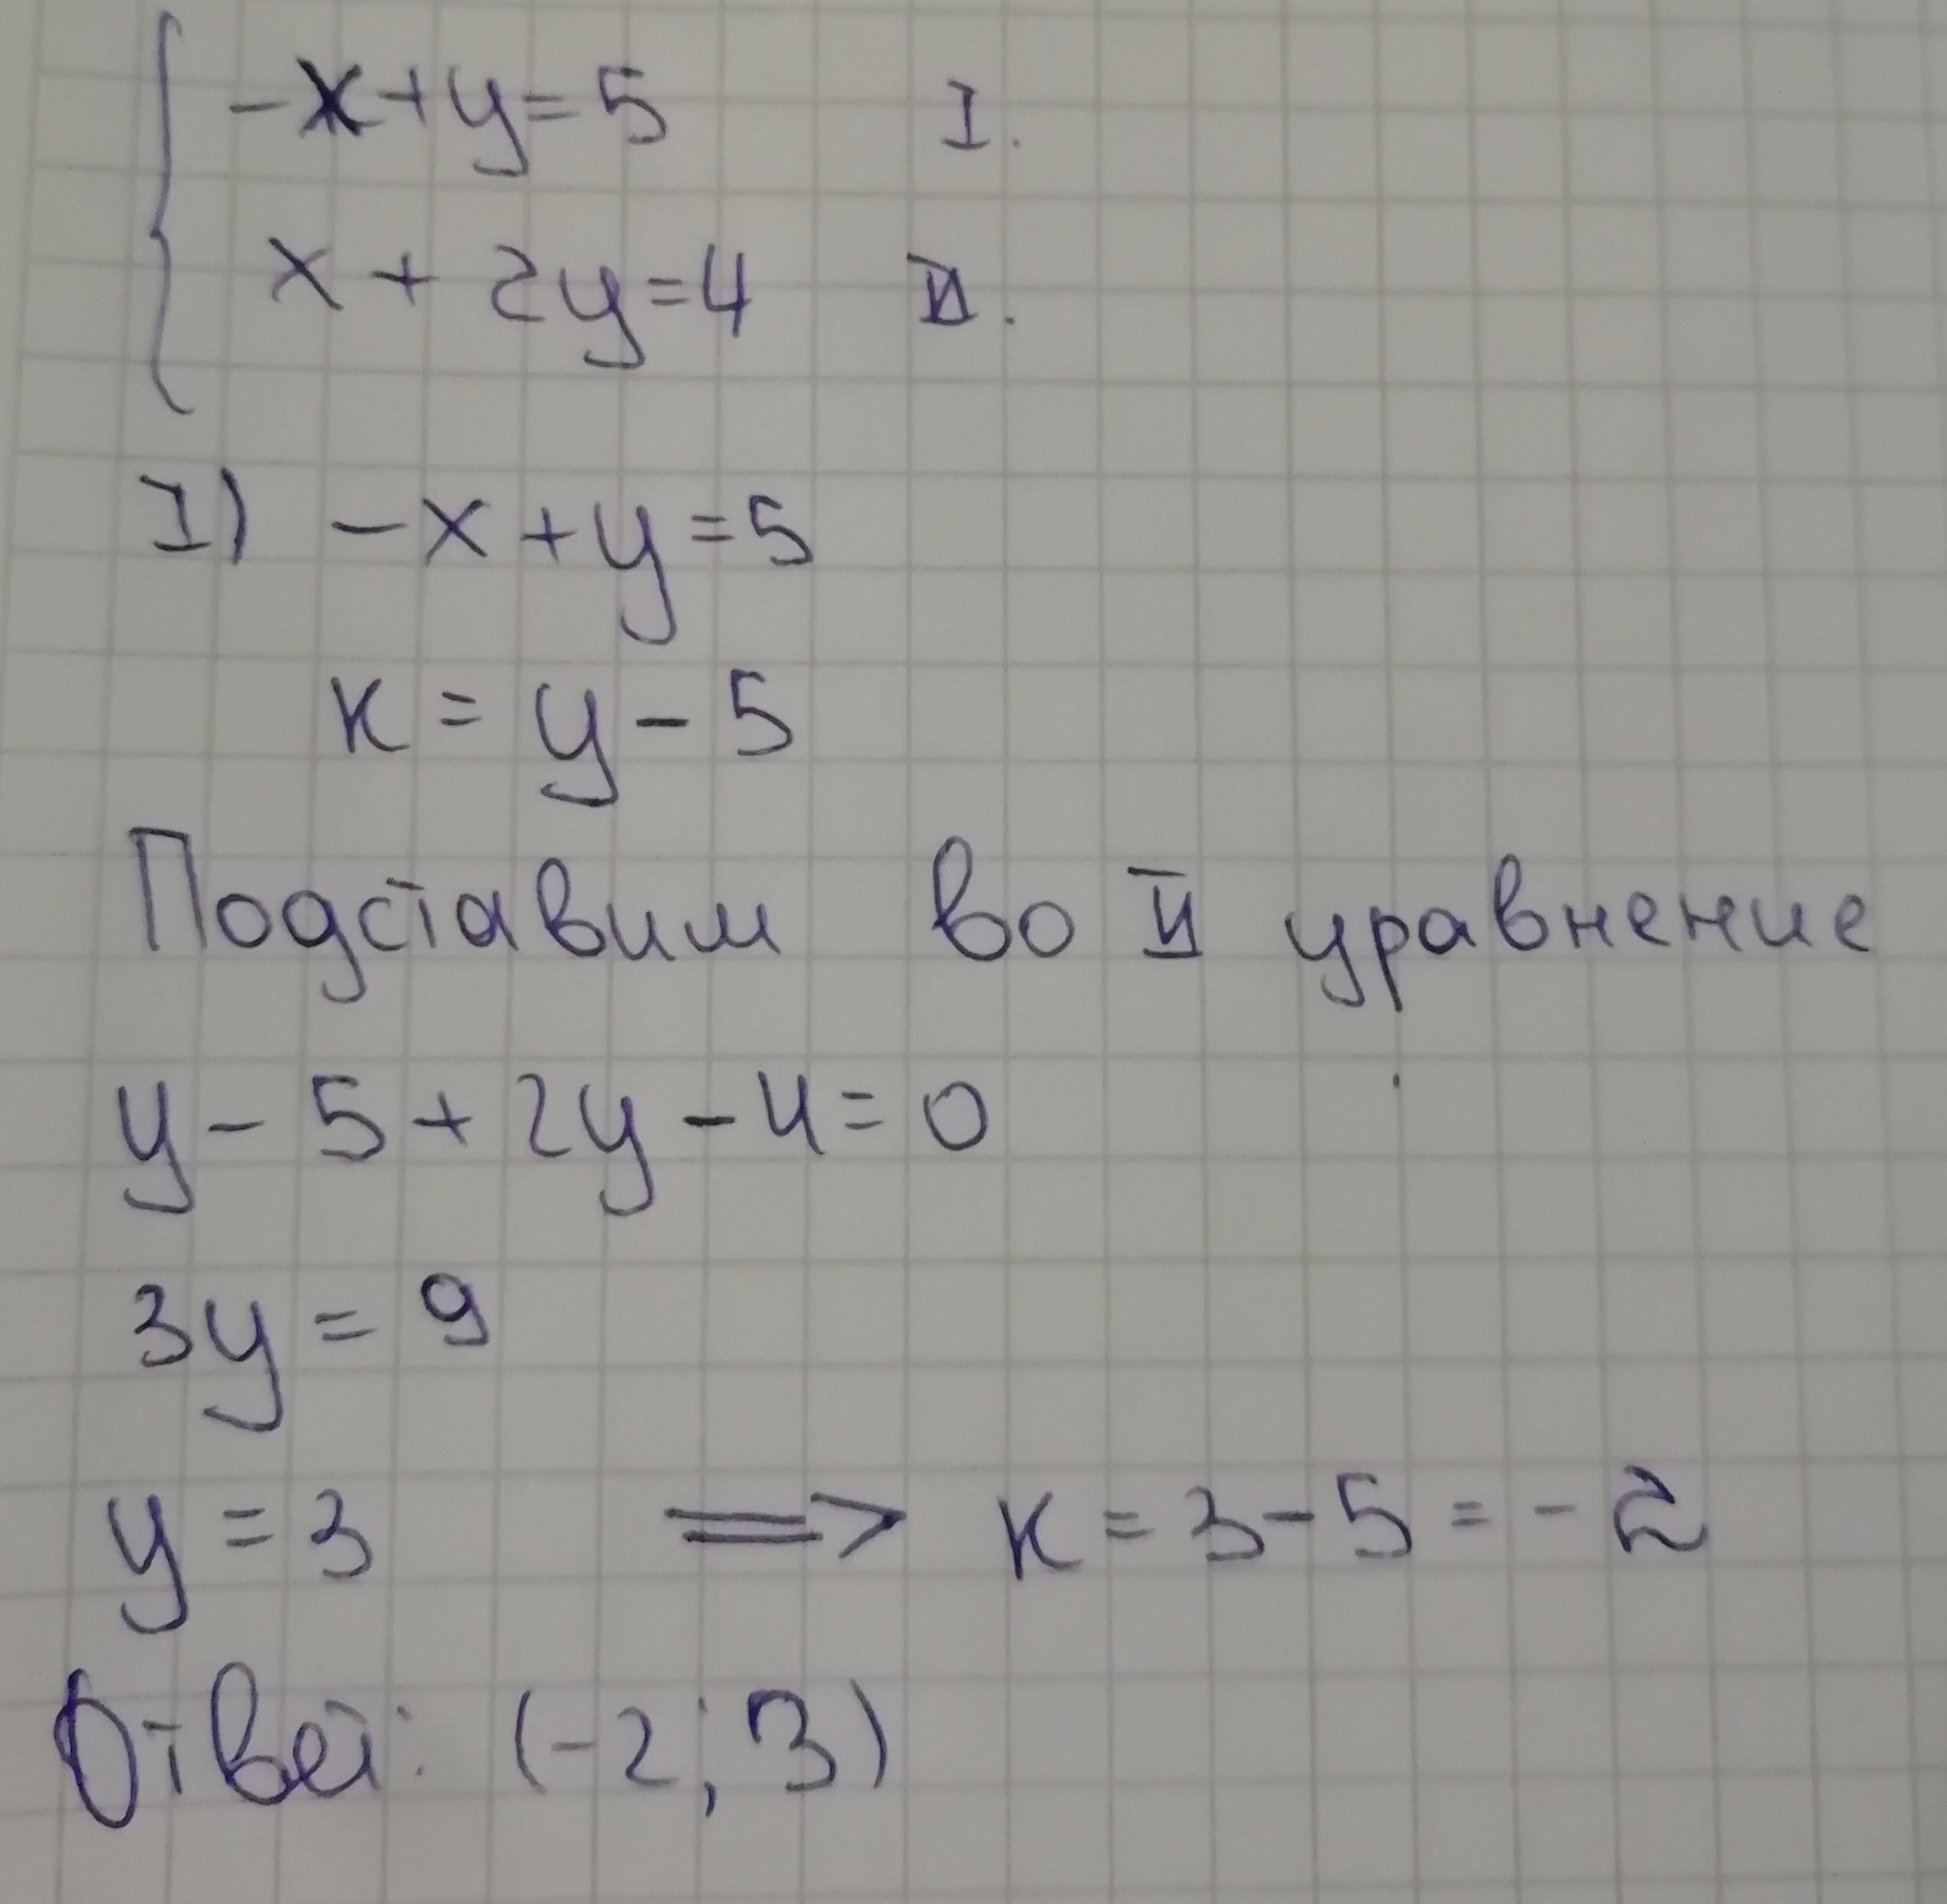 -x+y=5 I.
x + 2y=4 II.
I) -x+y=5
к = y-5
Подставим во II уравнение
y-5+2y-4=0
3y=9
y=3 => к=3-5=-2
Ответ: (-2; 3)